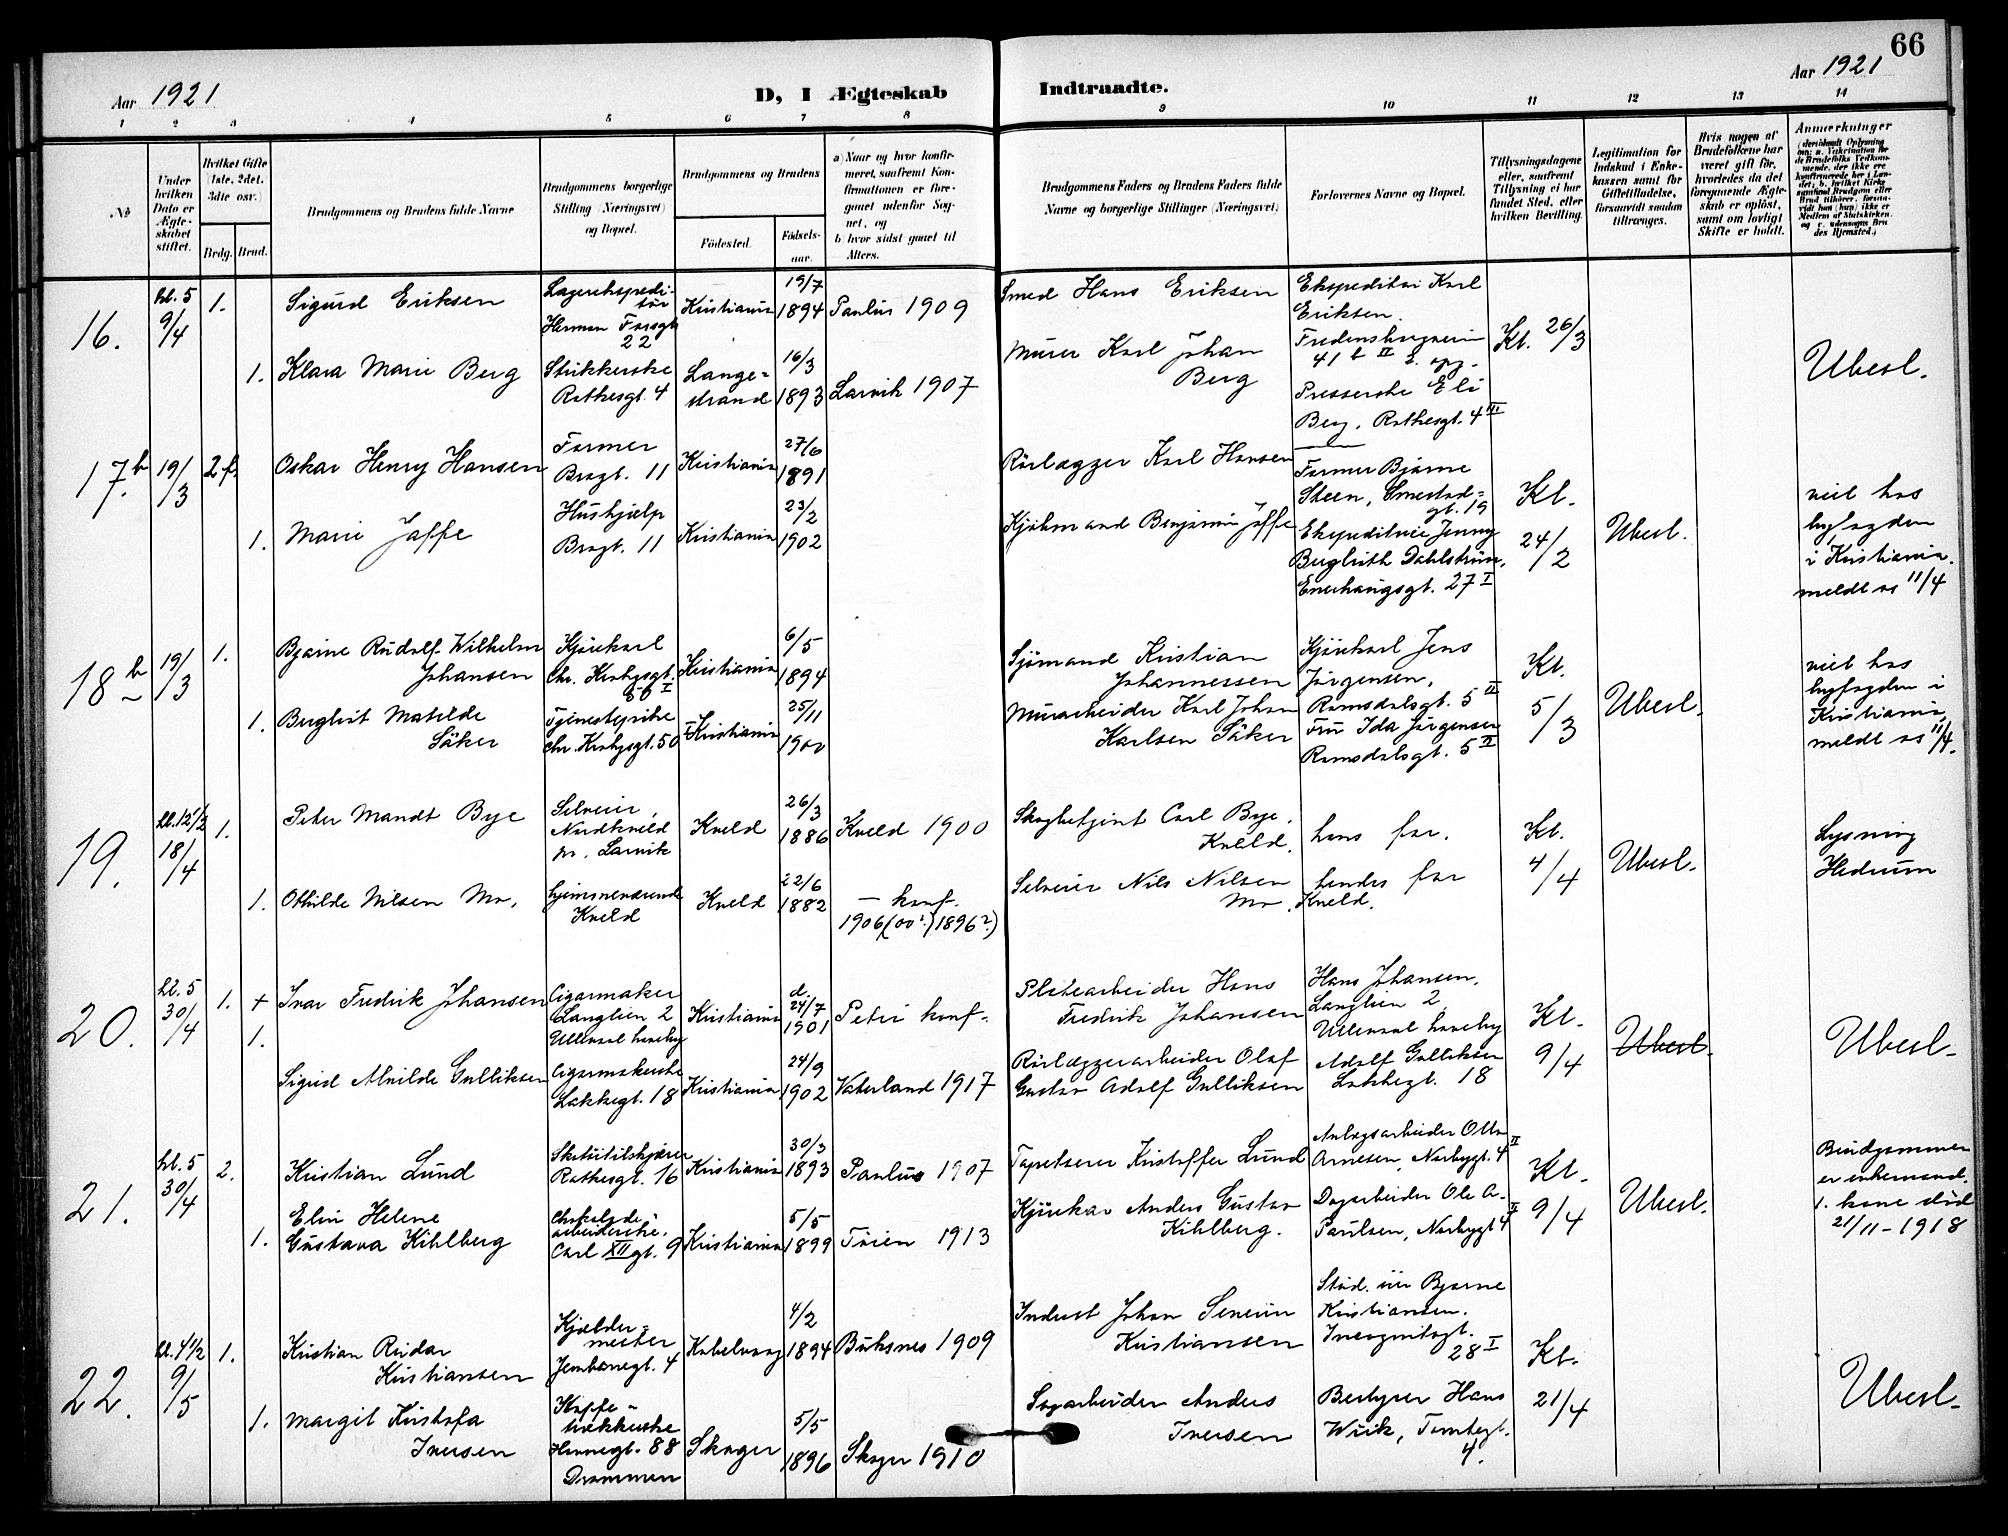 66
Aar 1921
D, I Ægteskab
Indtraadte.
Aar 1921
1 2 3 4 5 6 7 8 9 10 11 12 13 14
No
Under hvilken Dato er Ægteskabet stiftet.
Hvilket Gifte (1ste, 2det, 3die osv.)
Brdg. Brud.
Brudgommens og Brudens fulde Navne
Brudgommens borgerlige Stilling (Næringsvei) og Bopæl.
Brudgommens og Brudens
Fødested.
Fødselsaar.
a) Naar og hvor konfirmeret, saafremt Konfirmationen er foregaaet udenfor Sognet, og
b) hvor sidst gaaet til Alters.
Brudgommens Faders og Brudens Faders fulde Navne og borgerlige Stillinger (Næringsvei)
Forlovernes Navne og Bopæl.
Tillysningsdagene eller, saafremt Tillysning ei har fundet Sted, efter hvilken Bevilling.
Legitimation for Indskud i Enkekassen samt for Giftetilladelse, forsaavidt saadan tiltrænges.
Hvis nogen af Brudefolkene har været gift før, hvorledes da det foregaaende Ægteskab er opløst, samt om lovligt Skifte er holdt.
Anmærkninger
16.
kl. 5
9/4
1.
Sigurd Eriksen
Lagerekspeditør
Herman Fossgt
22
Kristiania
19/7
1894
Paulus 1909
Smed Hans Eriksen
Ekspeditør Karl
Eriksen.
41 b II
Kl. 26/3
1.
Klara Marie Berg
Strikkerske
Rathkesgt. 4
Langestrand
16/3
1893
Larvik 1907
Murer Karl Johan
Berg
Presserske Eli
Berg, Rathkesgt. 4 III
Ubesl.
17.b
19/3
2 f.
Oskar Henry Hansen
Former
Brogt. 11
Kristiania
27/6
1891
Rørlægger Karl Hansen
Former Bjarne
Steen, Smestadgt. 19
Kl.
24/2
1.
Marie Jaffe
Hushjælp
Brogt. 11
Kristiania
23/2
1902
Kjøbmand Benjamin Jaffe
Ekspeditrice Jenny
Berglioth Dahlstrøm,
Enerhaugsgt. 27 I
Ubesl.
viet hos
byfogden
i Kristiania.
meldt os 11/4
18 b
19/3
1.
Bjarne Rudolf Wilhelm
Johansen
Kjørekarl
Chr. Krohgsgt.
Kristiania
6/5
1894
Sjømand Kristian
Johannessen
Kjørekarl Jens
Jørgensen,
Romsdalsgt. 5 II
Kl.
5/3
1.
Bergliot Matilde
Säker
Tjenestepike
Chr. Krohgsgt. 50 I
Kristiania
25/11
1900
Murarbeider Karl Johan
Karlsen Säker
Fru Ida Jørgensen
Romsdalsgt. 5 II
Ubesl.
viet hos
byfogden i
Kristiania,
meldt os 11/4.
19.
kl. 12 1/2
18/4
1.
Peter Mandt Bye
Selveier,
Nordkveld
pr. Larvik
Kveld
26/3
1886
Kveld 1900
Skogbetjent Carl Bye,
Kveld.
hans far.
Kl.
4/4
Ubesl.
Lysning
Hedrum
1.
Othilde Nilsen Mo.
hjemmeværende
Kveld
Kveld
22/6
1882
— konf.
1906 (00?) 1896?)
Selveier Nils Nilsen
Mo, Kveld.
hendes far
20.
kl. 5
30/4
1.
+
1.
Ivar Fredrik Johansen
Cigarmaker
Langlien 2
Ullevaal haveby
Kristiania
d. 24/7
1901
Petri konf.
Platearbeider Hans
Fredrik Johansen
Hans Johansen,
Langlien 2,
Ullevaal haveby
Kl.
9/4
Ubesl.
Ubesl.
Sigrid Alvilde Gulliksen
Cigarmakerske
Lakkegt. 18
Kristiania
24/9
1902
Vaterland 1917
Rørlæggerarbeider Olaf
Gustav Adolf Gulliksen
Adolf Gulliksen
Lakkegt. 18
21.
kl. 5
30/4
2.
Kristian Lund
Skotøitilskjærer
Rathkesgt. 16
Kristiania
30/3
1893
Paulus 1907
Tapetserer Kristoffer Lund
Anlægsarbeider Otto
Arnesen, Norbygt. 4 II
Kl.
9/4
Ubesl.
Brudgommen
er enkemand.
1. kone død
21/11 - 1918
1.
Elin Helene
Gustava Kihlberg
Chokoladearbeiderske,
Carl XII gt. 9
Kristiania
5/5
1899
Tøien 1913
Kjørekar Anders Gustav
Kihlberg.
Dagarbeider Ole A.
Paulsen, Norbygt 4 II
22.
kl. 4 1/2
9/5
1.
Kristian Reidar
Kristiansen
Kjældermester
Jernbanegt. 4
Kabelvaag
4/2
1894
Buksnes 1909
Inderst Johan Severin
Kristiansen
Stud. jur Bjarne
Kristiansen.
Incognitogt.
28 I
Kl.
21/4
Ubesl.
1.
Margit Kristofa
Iversen
Kappetrækkerske
Havnegt. 88
Drammen
Skoger
5/5
1896
Skoger 1910
Sagarbeider Anders
Iversen
Bestyrer Hans
Wiik, Tomtegt.
4.